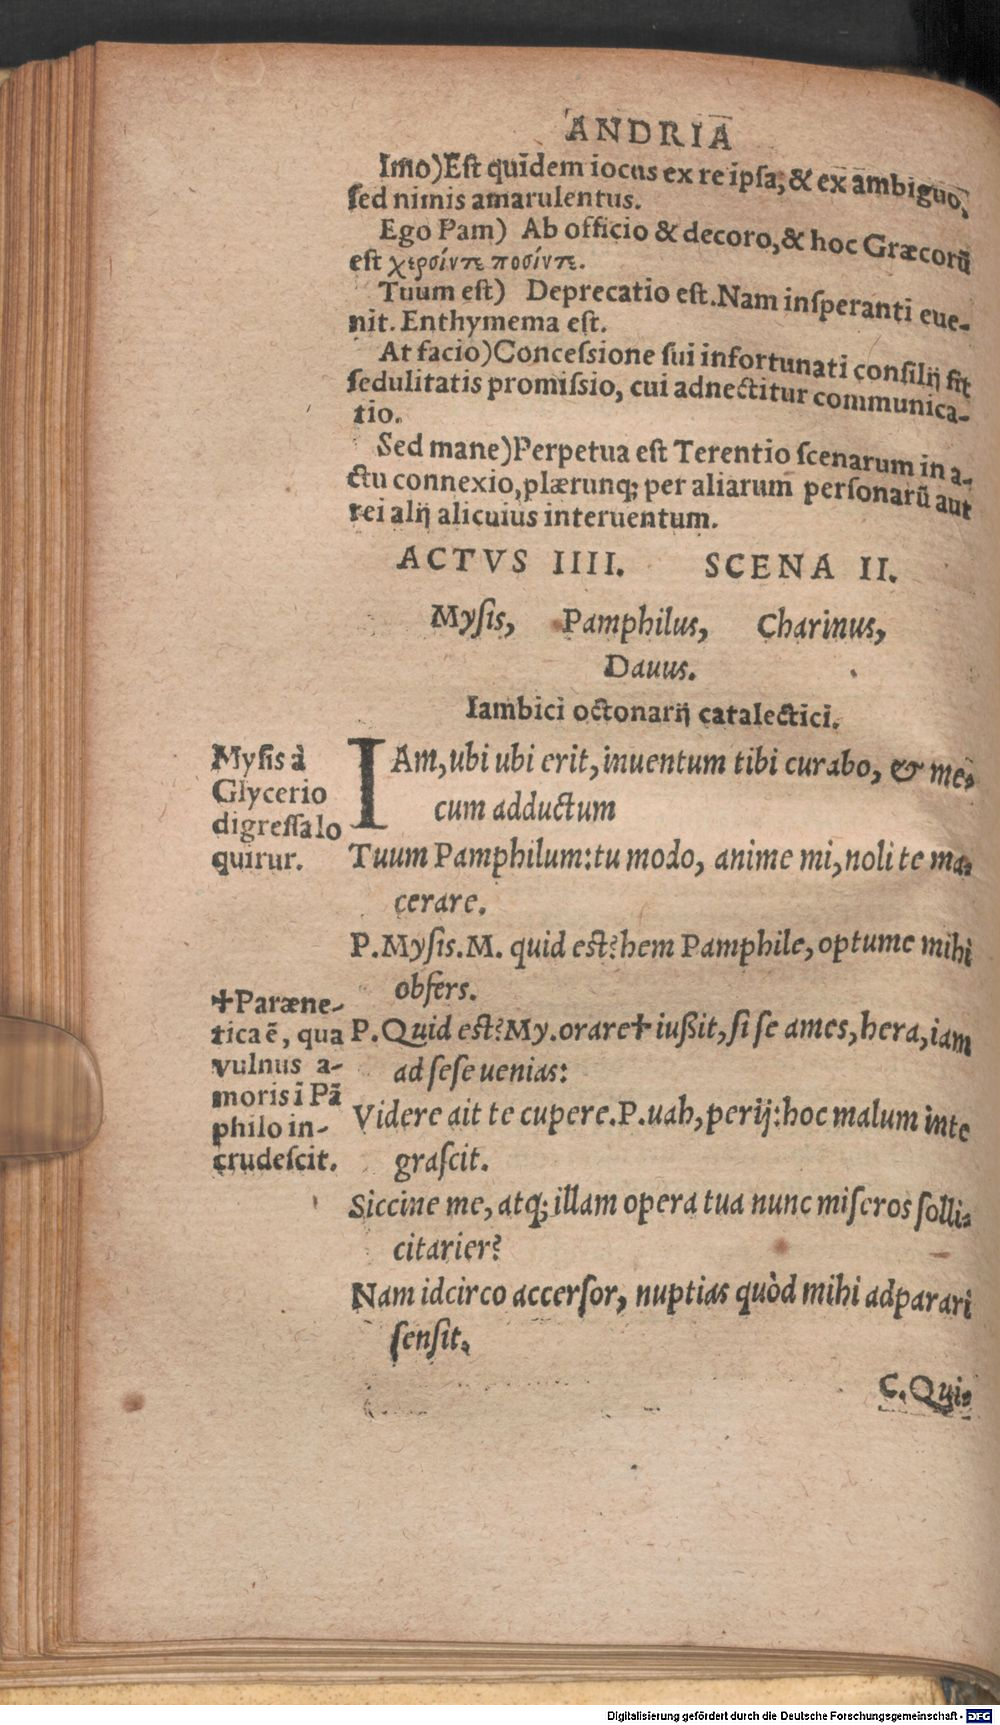 ANDRIA
Imo)Eſt quidem iocus ex re ipſa, & ex ambiguo,
ſed nimis amarulentus.
Ego Pam) Ab officio & decoro, & hoc Græcorũ
eſt χερσίντε ποσίντε.
Tuum eſt) Deprecatio eſt. Nam inſperanti eue-
nit. Enthymema eſt.
At facio)Conceſsione ſui infortunati conſilij fit
ſedulitatis promiſsio, cui adnectitur communica-
tio.
Sed mane)Perpetua eſt Terentio ſcenarum in a-
ctu connexio, plærunq; per aliarum perſonarũ aut
rei alij alicuius interuentum.
ACTVS IIII. SCENA II.
Myſis, Pamphilus, Charinus,
Dauus.
Iambici octonarij catalectici.
Myſis à
Glycerio
digreſſa lo
quirur.
IAm, ubi ubi erit, inuentum tibi curabo, & me-
cum adductum
Tuum Pamphilum: tu modo, anime mi, noli te ma-
cerare.
P. Myſis. M. quid eſt? hem Pamphile, optume mihi
obfers.
✝Paræne-
tica ẽ, qua
vulnus a-
moris ĩ Pã
philo in-
crudeſcit.
P. Quid eſt? My. orare✝ iußit, ſi ſe ames, hera, iam
ad ſeſe uenias:
Videre ait te cupere. P. uah, perij: hoc malum inte
graſcit.
Siccine me, atq; illam opera tua nunc miſeros ſolli-
citarier?
Nam idcirco accerſor, nuptias quòd mihi adparari
ſenſit.
C. Qui-
Digitalisierung gefördert durch die Deutsche Forschungsgemeinschaft - DFG